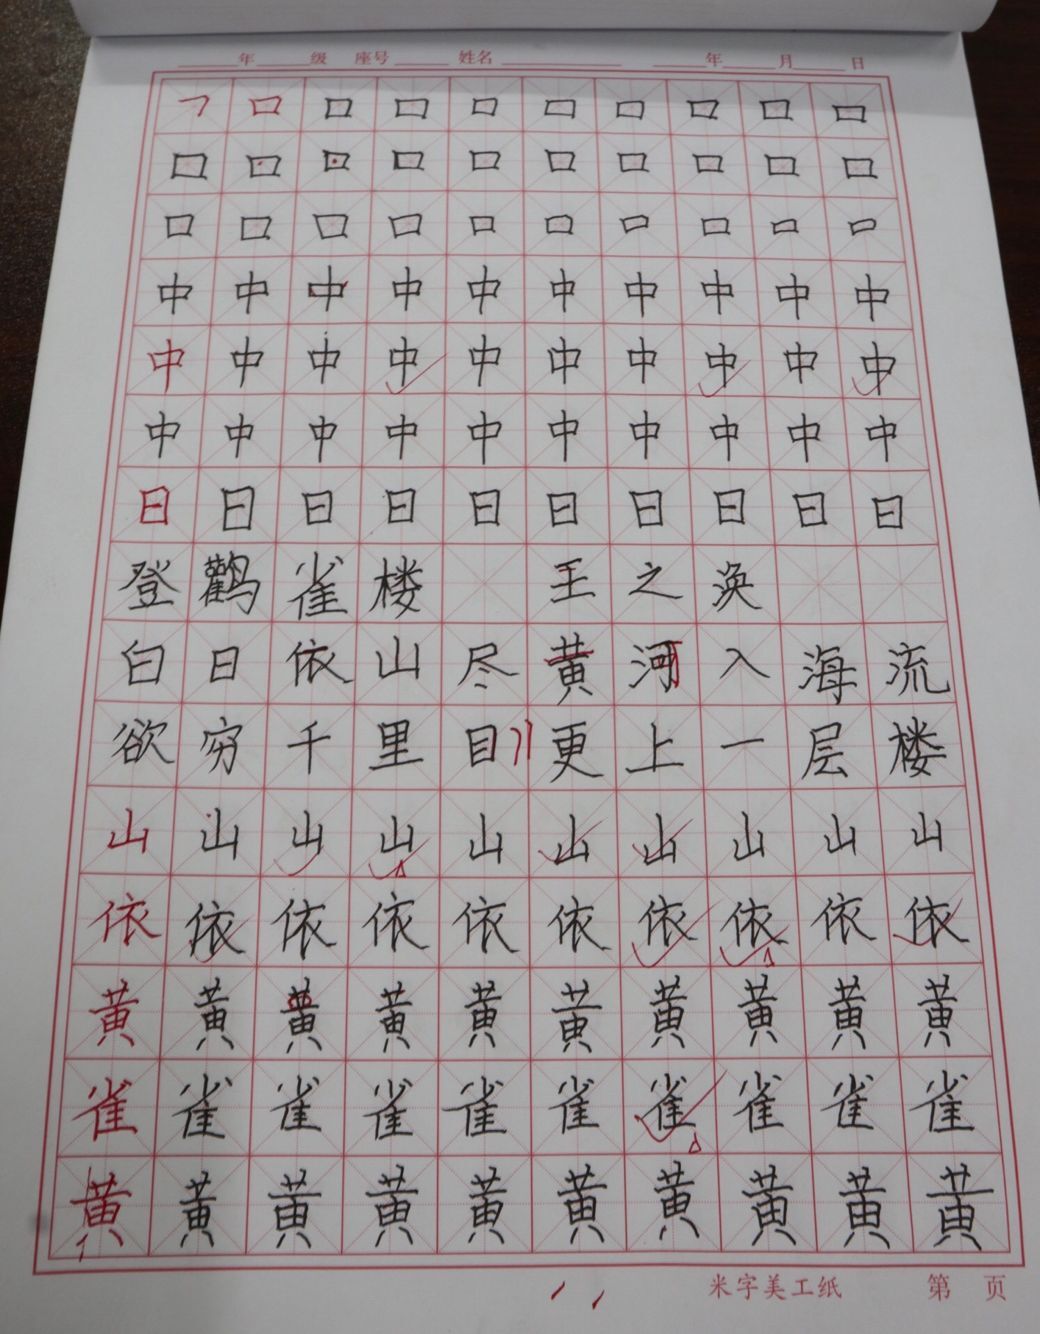 年 级 座号 姓名 年 月 日
㇕ 口 口 口 口 口 口 口 口 口
口 口 口 口 口 口 口 口 口 口
口 口 口 口 口 口 口 口 口 口
中 中 中 中 中 中 中 中 中 中
中 中 中 中 中 中 中 中 中 中
中 中 中 中 中 中 中 中 中 中
日 日 日 日 日 日 日 日 日 日
登 鹳 雀 楼 王 之 涣
白 日 依 山 尽 黄 河 入 海 流
欲 穷 千 里 目 更 上 一 层 楼
山 山 山 山 山 山 山 山 山 山
依 依 依 依 依 依 依 依 依 依
黄 黄 黄 黄 黄 黄 黄 黄 黄 黄
雀 雀 雀 雀 雀 雀 雀 雀 雀 雀
黄 黄 黄 黄 黄 黄 黄 黄 黄 黄
米字美工纸 第 页